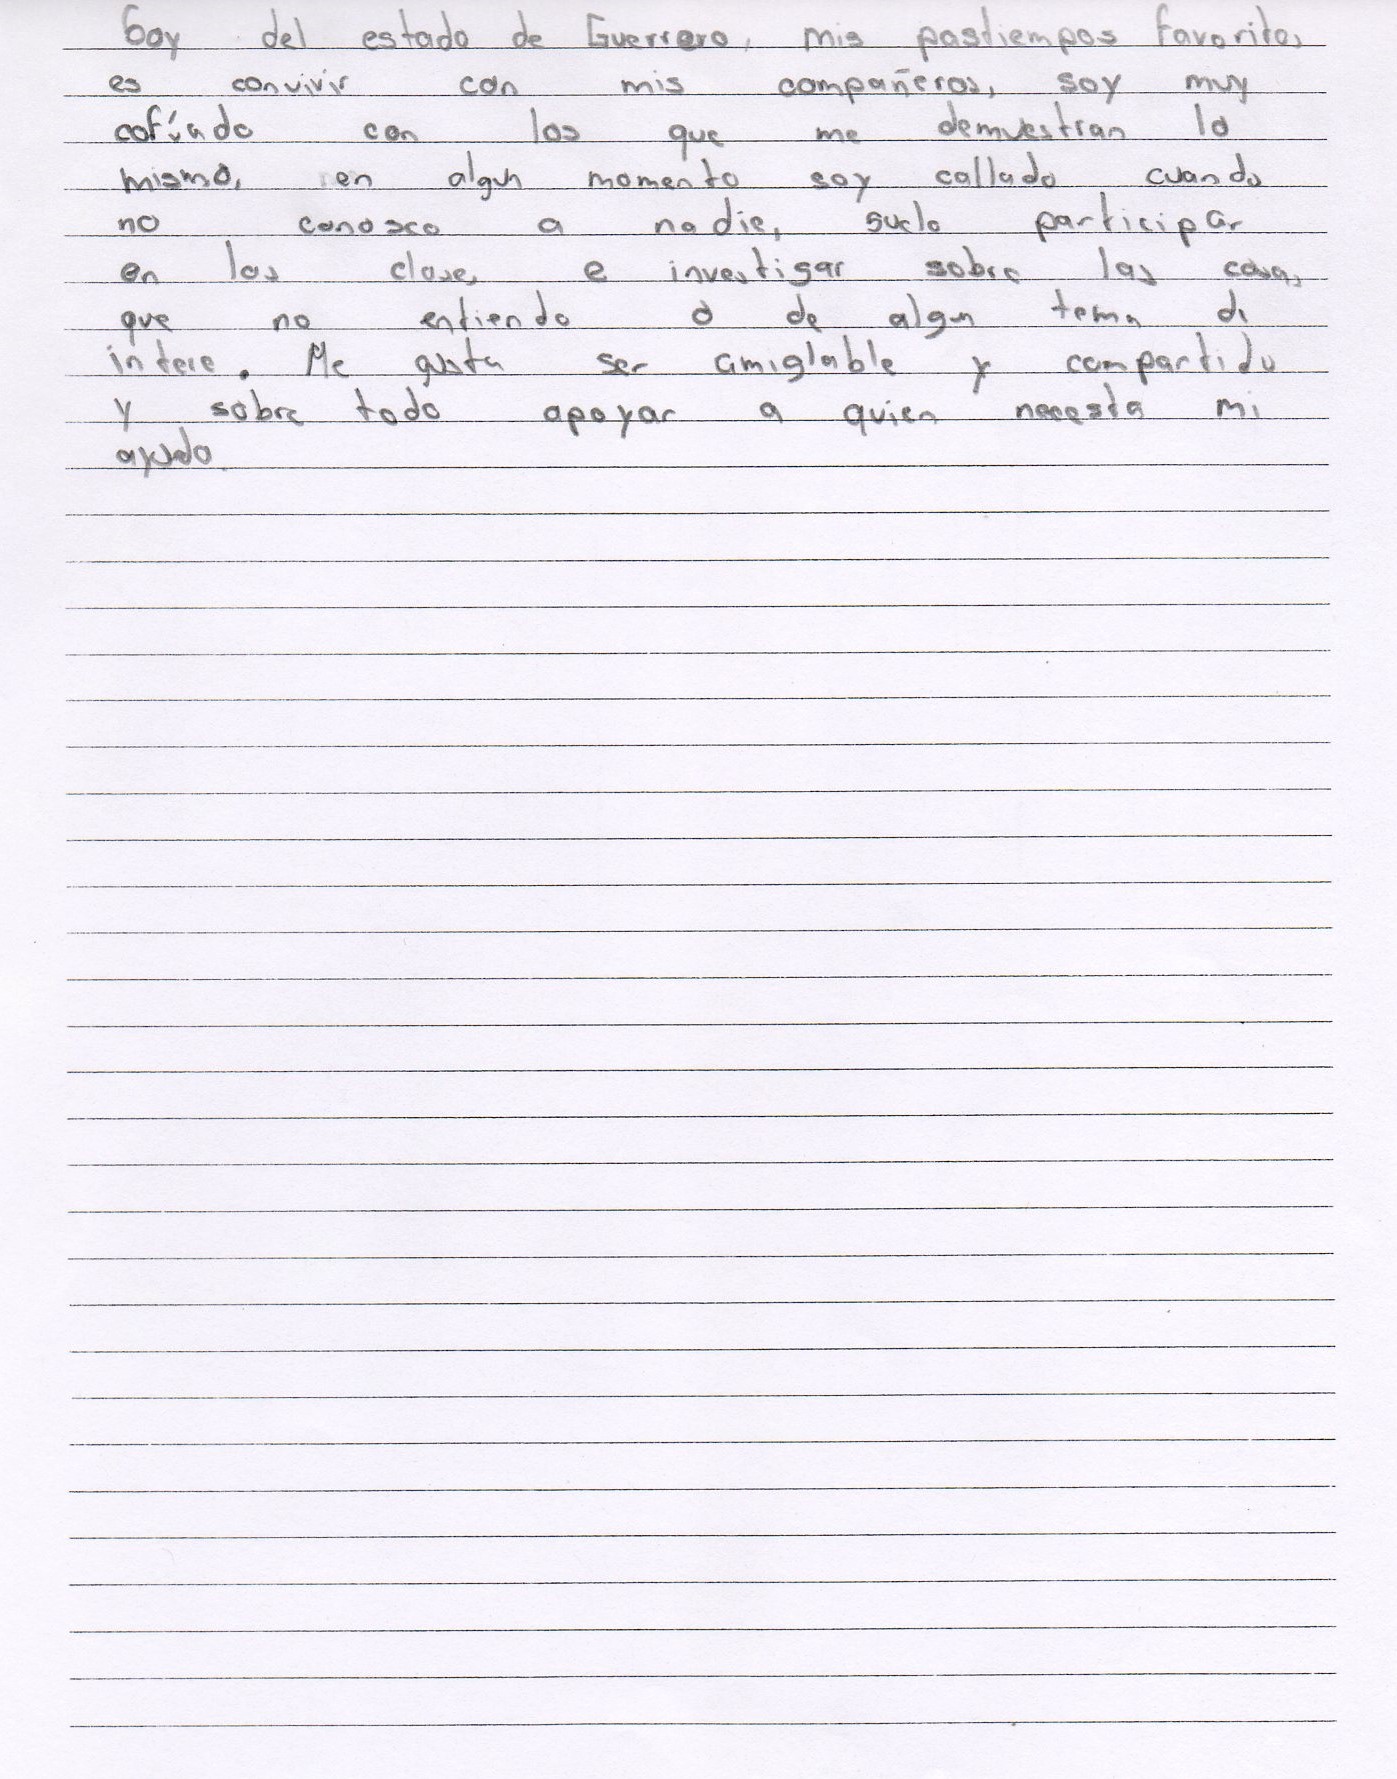 Soy del estado de Guerrero, mis pastiempos favoritos
es convivir con mis compañeros, soy muy
cofíado con los que me demuestran lo
mismo, en algun momento soy callado cuando
no conosco a nadie, suelo participar
en las clase, e investigar sobre las cosas
que no entiendo o de algun tema de
interes. Me gusta ser amiglable y compartido
y sobre todo apoyar a quien necesta mi
ayuda.